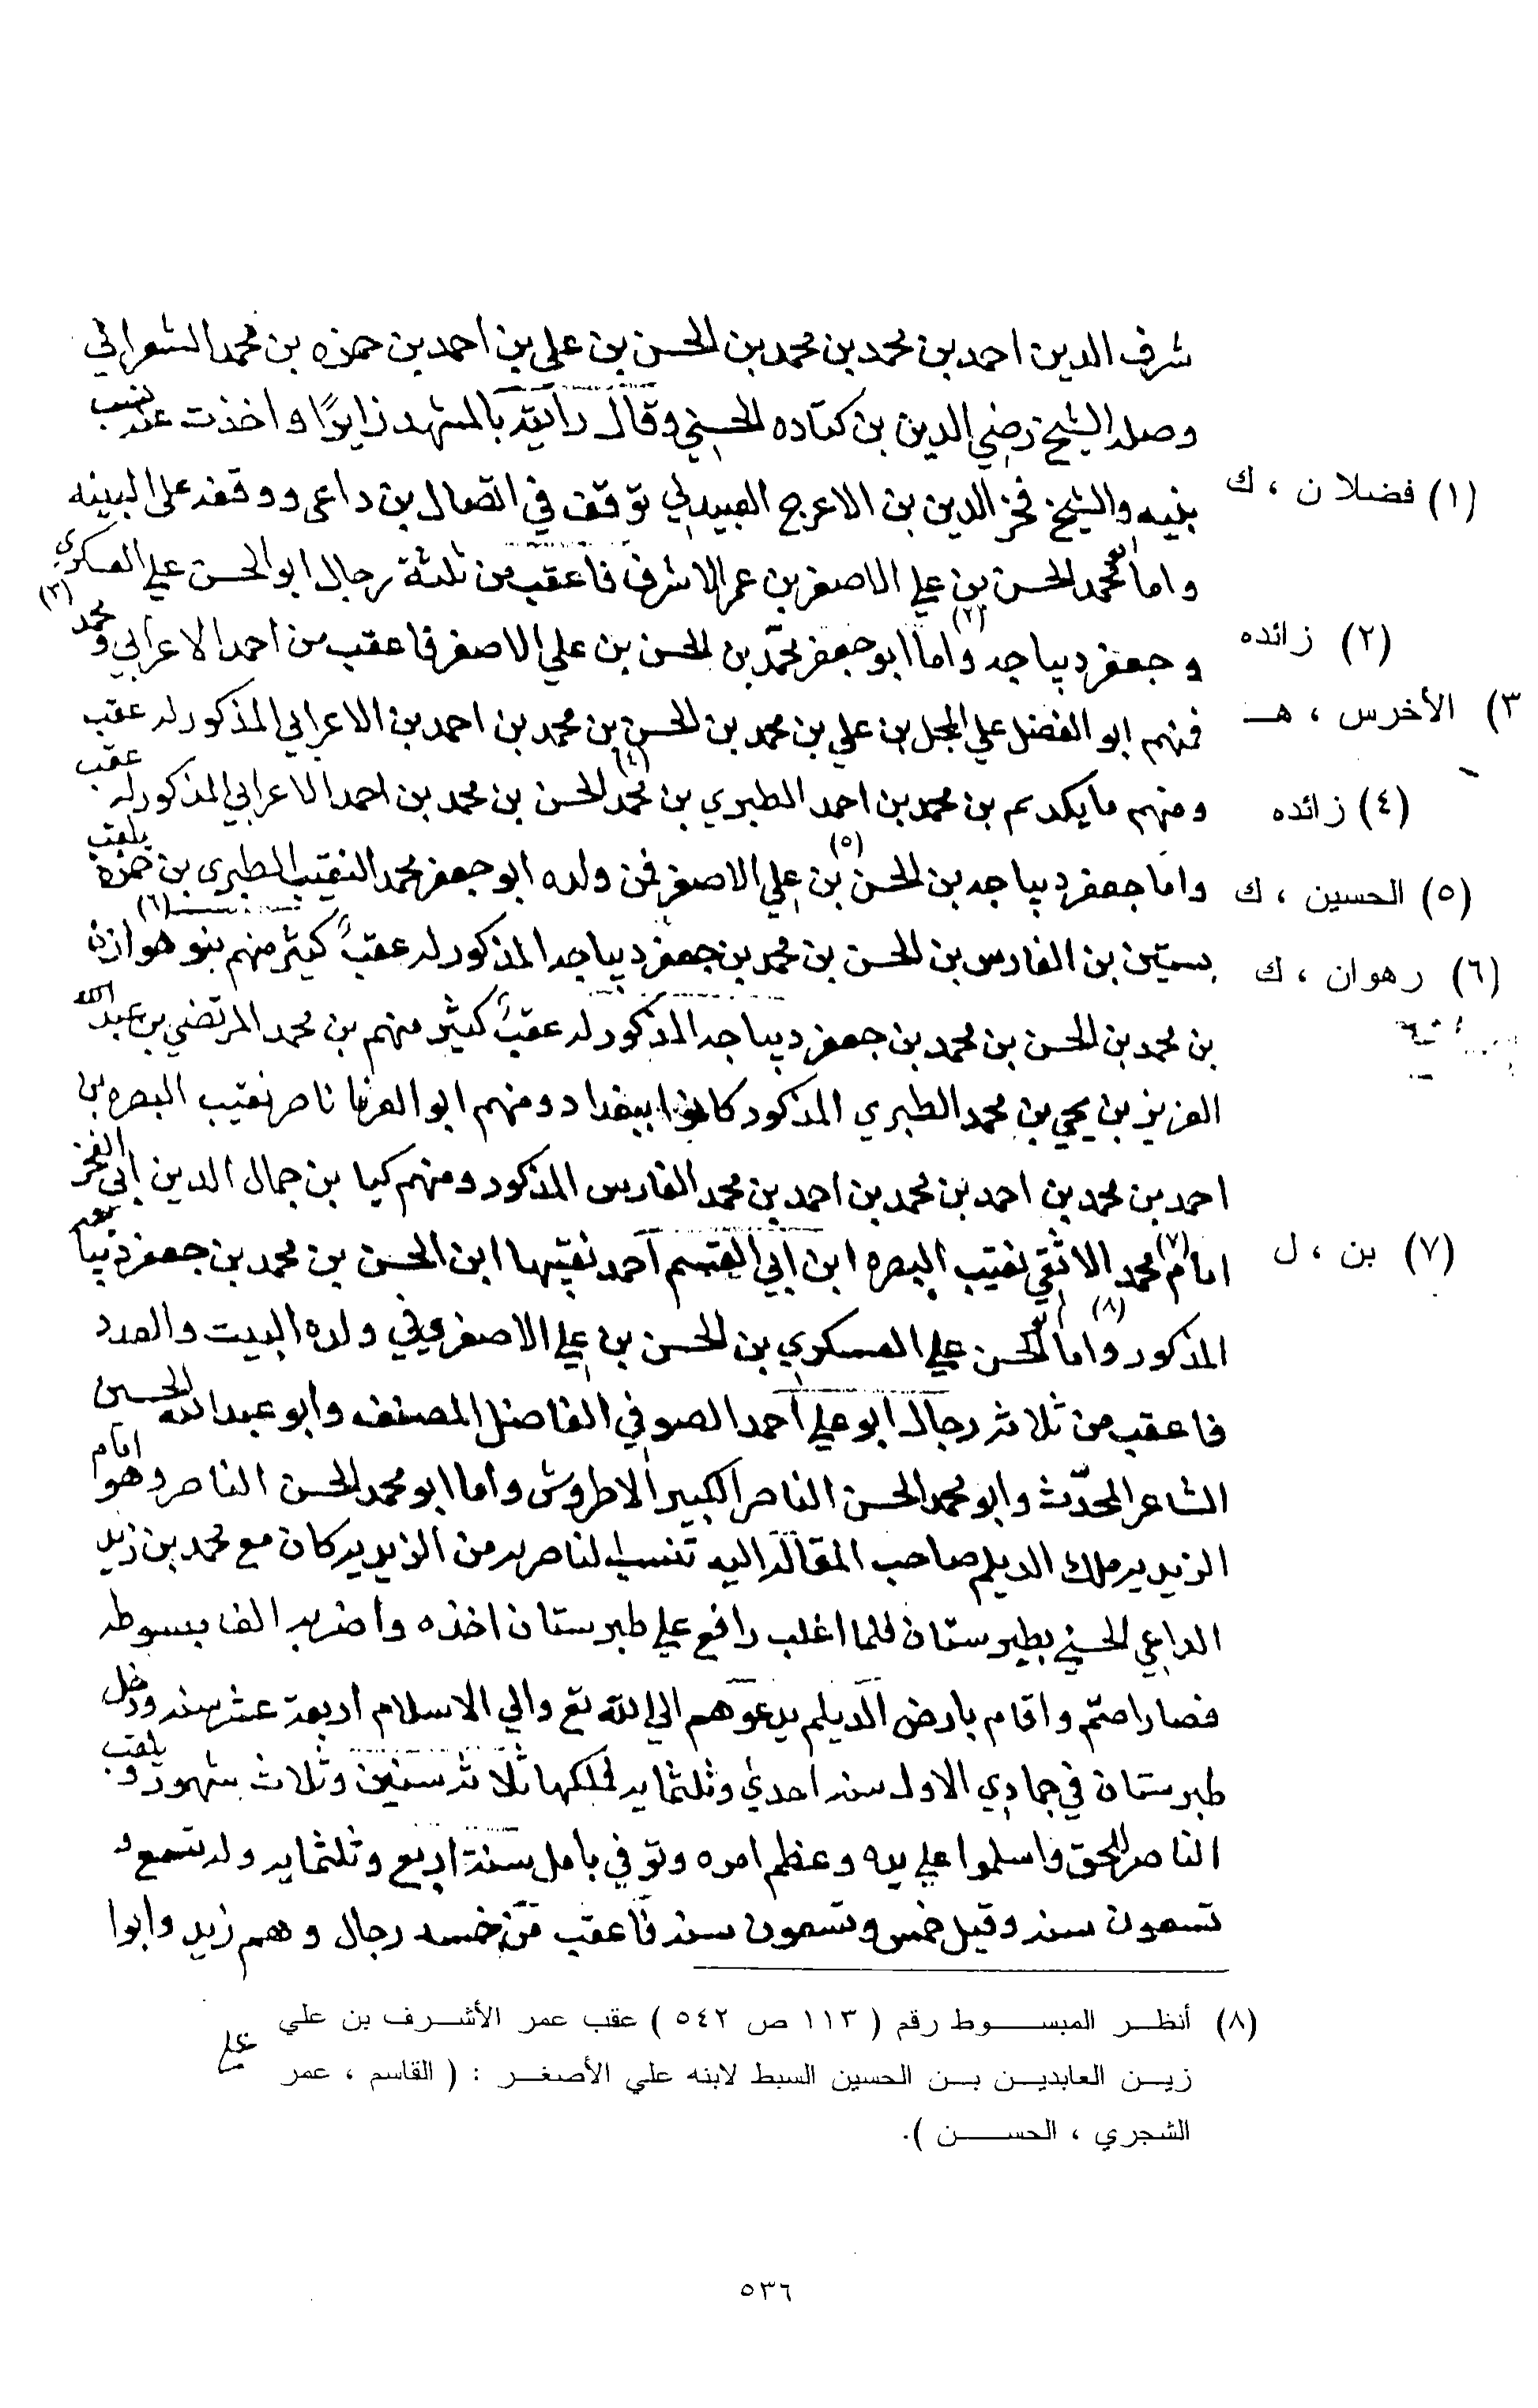 شرف الدين احمد بن محمد بن محمد بن الحسن بن علي بن احمد بن حمزه بن محمد الشعراني
وصله الشيخ رضي الدين بن كتاده الحسني وقال رايته بالمشهد زايرًا واخذت عنه نسب
بنيه والشيخ فخر الدين بن الاعرج العبيدلي توقف في اتصال بن داعى ووقفه على البينه
(١) فضلان ، ك
واما ابو محمد الحسن بن علي الاصغر بن عمر الاشرف فاعقب من ثلثة رجال ابو الحسن علي العسكري
وجعفر ديباجه (٢) واما ابو جعفر محمد بن الحسن بن علي الاصغر فاعقب من احمد الاعرابي ومحمد (٣)
(٢) زائده
فمنهم ابو الفضل علي المجل بن علي بن محمد بن الحسن بن محمد بن احمد بن الاعرابي المذكور له عقب
(٣) الأخرس ، هـ
ومنهم مايكديم بن محمد بن احمد الطبري بن محمد (٤) الحسن بن محمد بن احمد الاعرابي المذكور له عقب
(٤) زائده
واما جعفر ديباجه بن الحسن (٥) بن علي الاصغر فمن ولده ابو جعفر محمد النقيب الطبري بن حمزه يلقب
(٥) الحسين ، ك
بستين بن الفارس بن الحسن بن محمد بن جعفر ديباجه المذكور له عقبً كثير منهم بنو هوازن (٦)
(٦) رهوان ، ك
بن محمد بن الحسن بن محمد بن جعفر ديباجه المذكور له عقبً كثير منهم بن محمد المرتضي بن عبد الله
العزيز بن يحيي بن محمد الطبري المذكور كانوا ببغداد ومنهم ابو العز نا ناصر نقيب البصره بن
احمد بن محمد بن احمد بن محمد بن احمد بن محمد الفارس المذكور ومنهم كيا بن جمال الدين ابي الفخر
امام (٧) محمد الاثقي نقيب البصره ابن ابي القسم احمد نقيبها ابن الحسن بن محمد بن جعفر ديبا
(٧) بن ، ل
المذكور (٨) واما ابو الحسن علي العسكري بن الحسن بن علي الاصغر وفي ولده البيت والعدد
فاعقب من ثلاثه رجال ابو علي احمد الصوفي الفاضل المصنف وابو عبد الله الحسين
الشاعر المحدّث وابو محمد الحسن الناصر الكبير الاطروش واما ابو محمد الحسن الناصر وهو امام
الزيديه ملك الديلم صاحب المقاله اليه تنسب الناصريه من الزيديه كان مع محمد بن زيد
الداعي الحسني بطبرستان فلما اغلب رافع علي طبرستان اخذه واضربه الف بسوطه
فصار اصتم واقام بارض الديلم يدعوهم الي الله تع والي الاسلام اربعة عشر سنه ودخل
طبرستان في جمادي الاول سنه احدي وثلثمايه فملكها ثلاثه سنين وثلاث شهور ويلقب
الناصر للحق واسلموا علي يده وعظم امره وتوفي بامل سنة اربع وثلثمايه وله تسع و
تسعون سنه وقيل خمس وتسعون سنه فاعقب من خمسه رجال وهم زيد وابوا
(٨) أنظر المبسوط رقم ( ١١٣ ص ٥٤٢ ) عقب عمر الأشرف بن علي
علي
زين العابدين بن الحسين السبط لابنه علي الأصغر : ( القاسم ، عمر
الشجري ، الحسن ).
٥٣٦